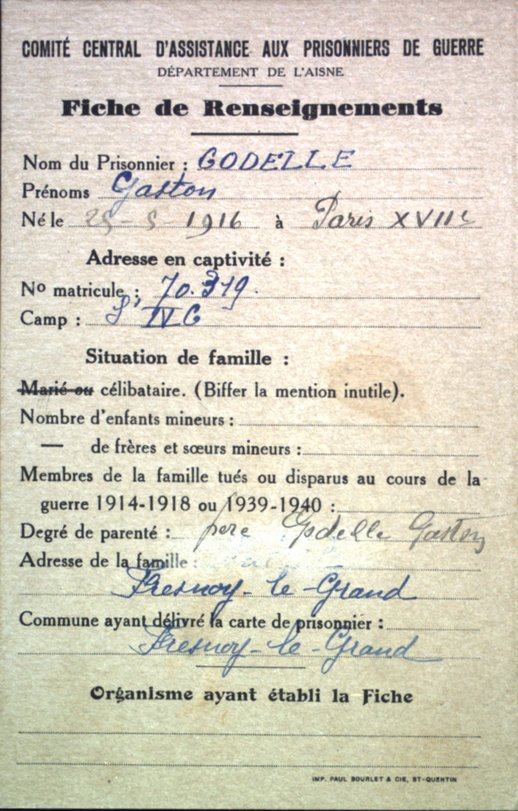 COMITÉ CENTRAL D'ASSISTANCE AUX PRISONNIERS DE GUERRE
DÉPARTEMENT DE L'AISNE
Fiche de Renseignements
Nom du Prisonnier : GODELLE
Prénoms Gaston
Né le 1916 à Paris XVIIe
Adresse en captivité :
No matricule : 70.319.
Camp : IV G
Situation de famille :
Marié ou célibataire. (Biffer la mention inutile).
Nombre d'enfants mineurs :
— de frères et sœurs mineurs :
Membres de la famille tués ou disparus au cours de la
guerre 1914-1918 ou 1939-1940 :
Degré de parenté : père Godelle Gaston
Adresse de la famille :
Fresnoy-le-Grand
Commune ayant délivré la carte de prisonnier :
Fresnoy-le-Grand
Organisme ayant établi la Fiche
IMP. PAUL BOURLET & CIE, ST-QUENTIN